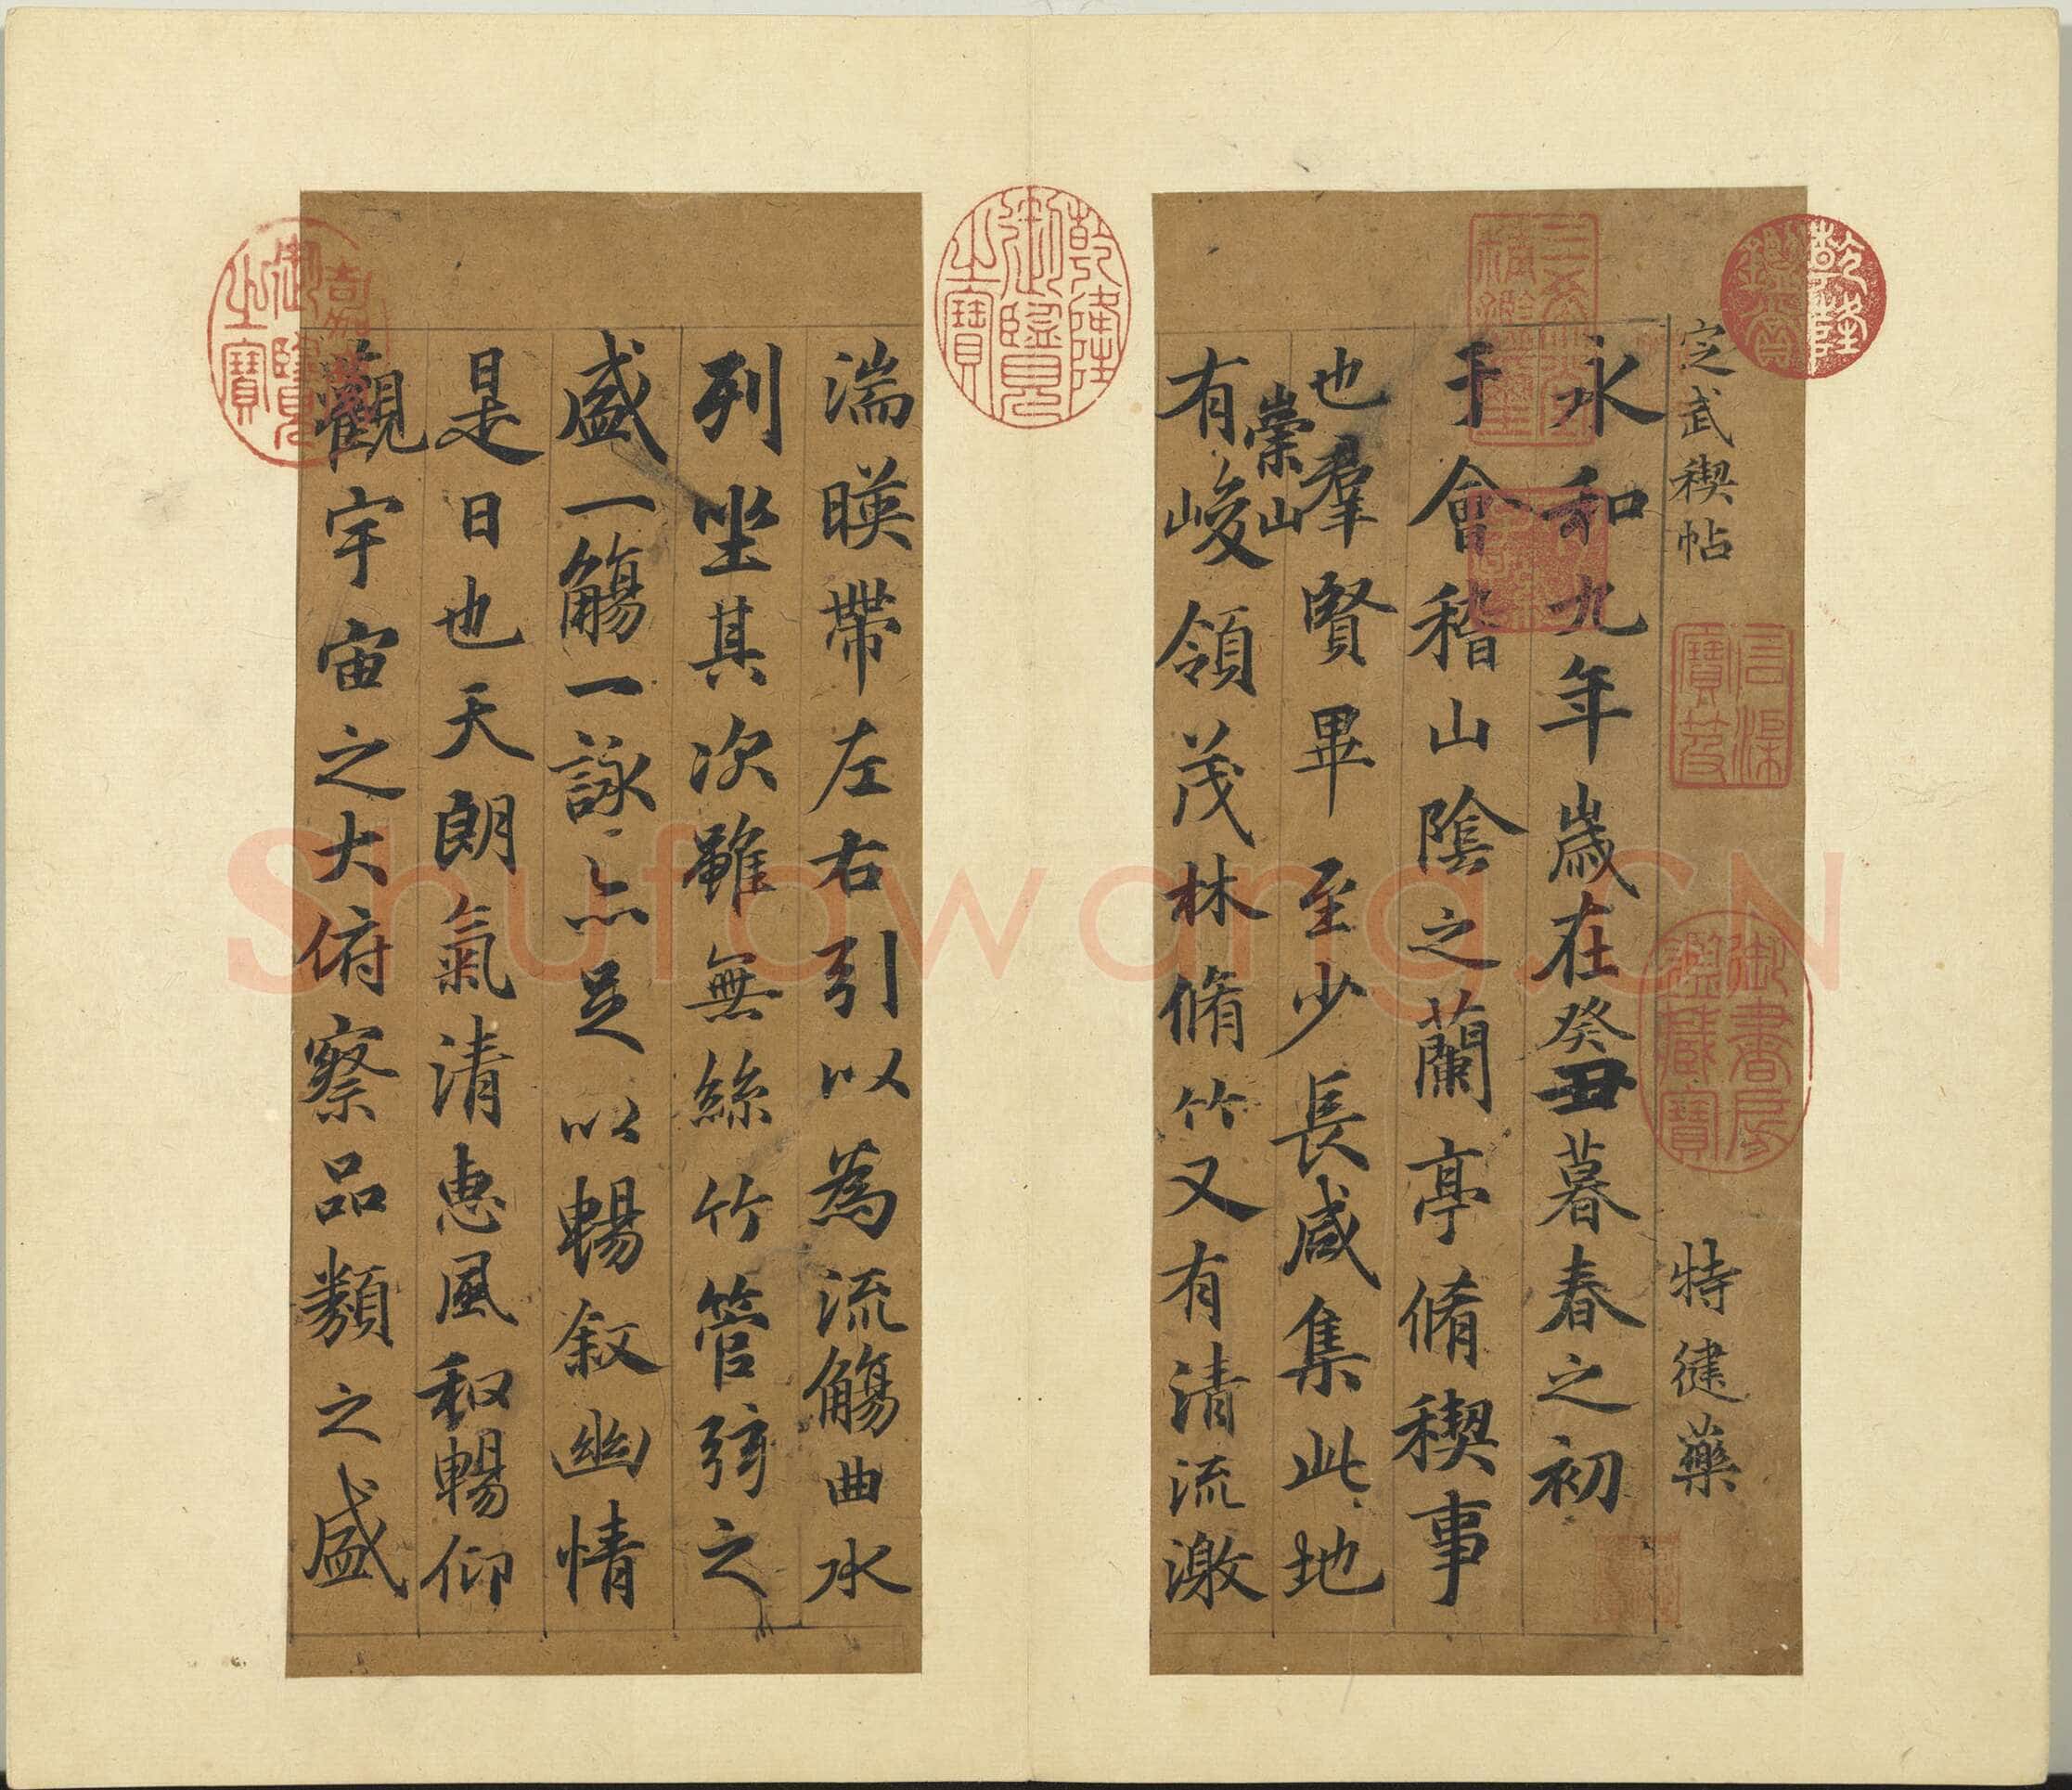 定武禊帖 特健藥
永和九年歲在癸丑暮春之初
于會稽山陰之蘭亭脩禊事
也羣賢畢至少長咸集此地
崇山
有峻領茂林脩竹又有清流激
湍暎帶左右引以為流觴曲水
列坐其次雖無絲竹管弦之
盛一觴一詠亦足以暢叙幽情
是日也天朗氣清惠風和暢仰
觀宇宙之大俯察品類之盛
乾隆鑒賞
三希堂精鑑璽
御書房鑑藏寶
乾隆御覽之寶
嘉慶御覽之寶
shufawang.CN